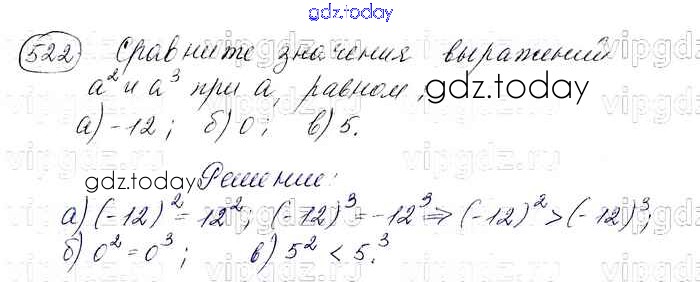 gdz.today
522. Сравните значения выражений
a² и a³ при a, равном,
gdz.today
а) -12; б) 0; в) 5.
gdz.today
Решение:
а) (-12)² = 12²; (-12)³ = -12³ ⇒ (-12)² > (-12)³;
б) 0² = 0³; в) 5² < 5³.